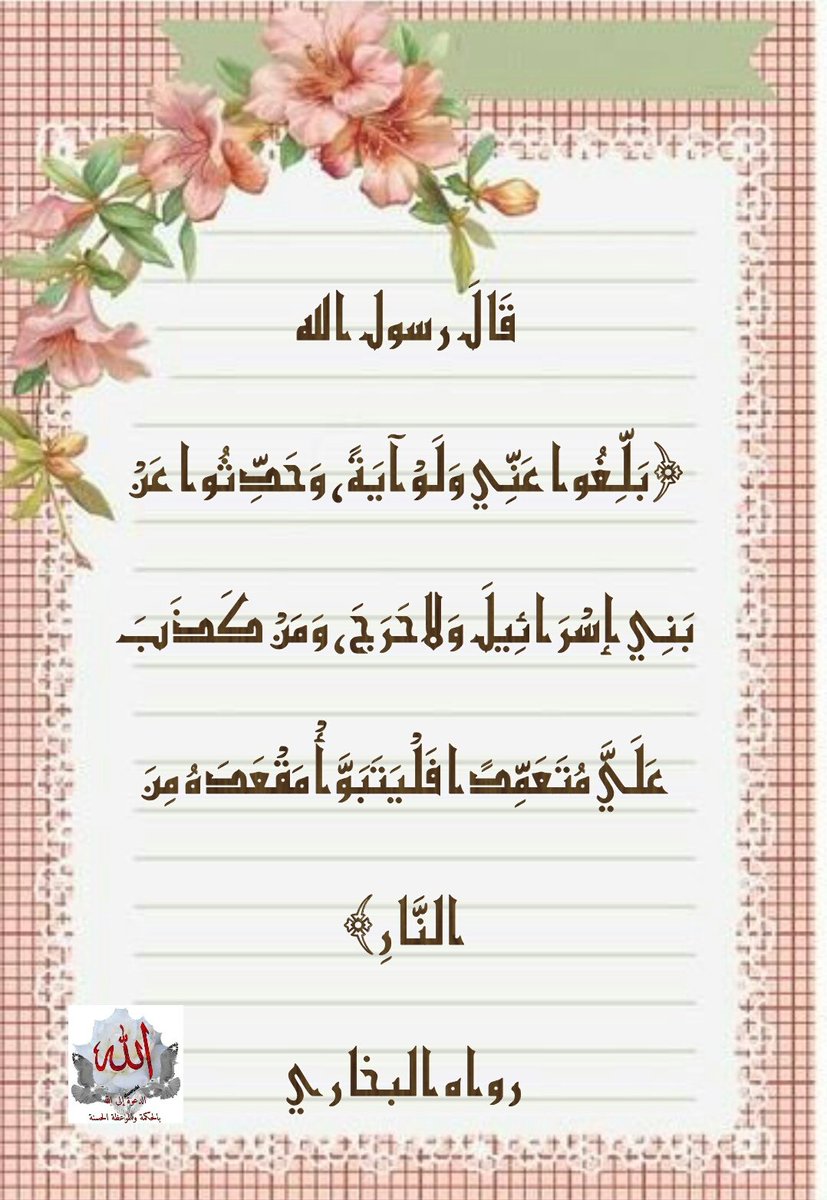 قَالَ رسول الله
﴿بَلِّغُوا عَنِّي وَلَوْ آيَةً، وَحَدِّثُوا عَنْ
بَنِي إِسْرَائِيلَ وَلا حَرَجَ، وَمَنْ كَذَبَ
عَلَيَّ مُتَعَمِّدًا فَلْيَتَبَوَّأْ مَقْعَدَهُ مِنَ
النَّارِ﴾
رواه البخاري
الله
الدعوة إلى الله
بالحكمة والموعظة الحسنة